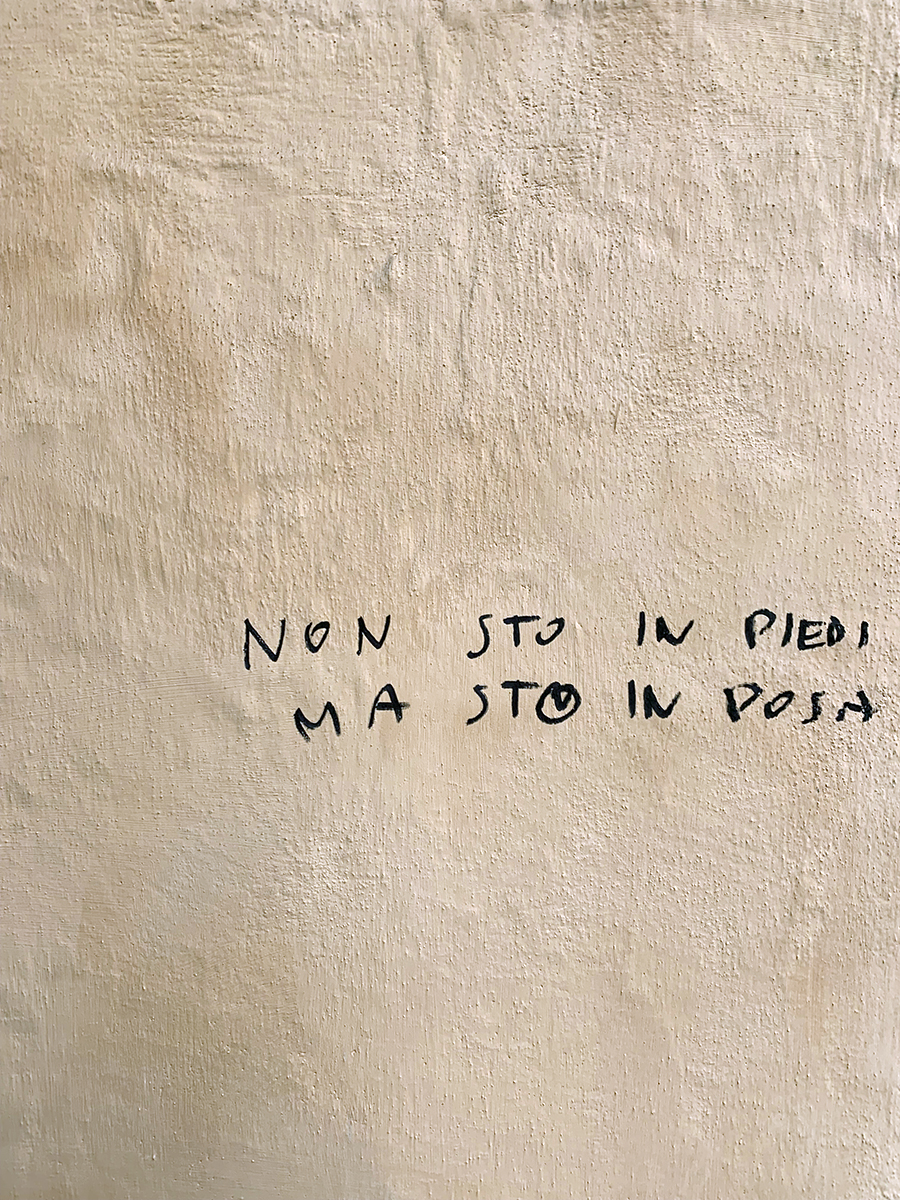 NON STO IN PIEDI
MA STO IN POSA